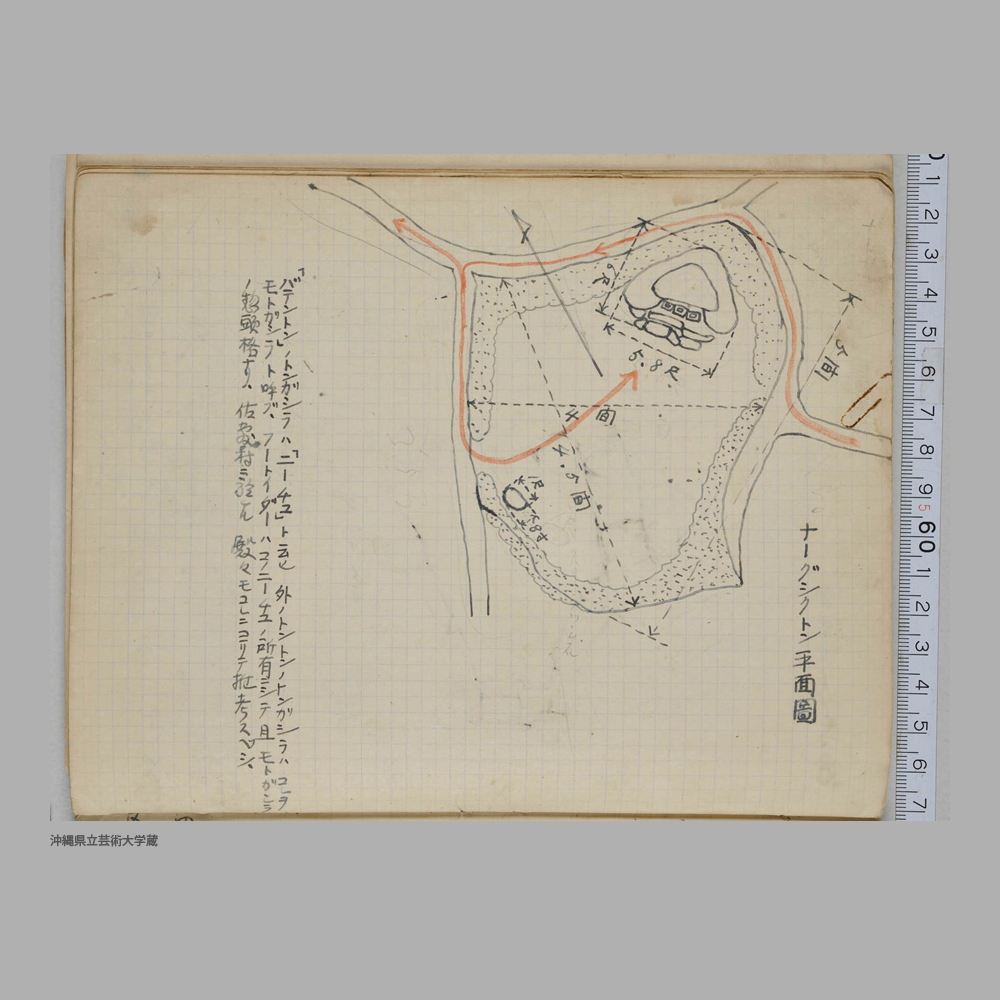 ナーグシクトン平面圖
5間
6尺
5.8尺
4間
4.5間
「バテントン」ノトンガシラハ「ニーチュ」ト云ヒ 外ノトントンノトンガシラハ コヲ
モトガシラト呼ブ、フートイダーハフニー
所有ニシテ且モトガシラ
ノ総頭格ナリ、佐敷村
殿々モコレニヨリテ推考スベシ、
沖縄県立芸術大学蔵